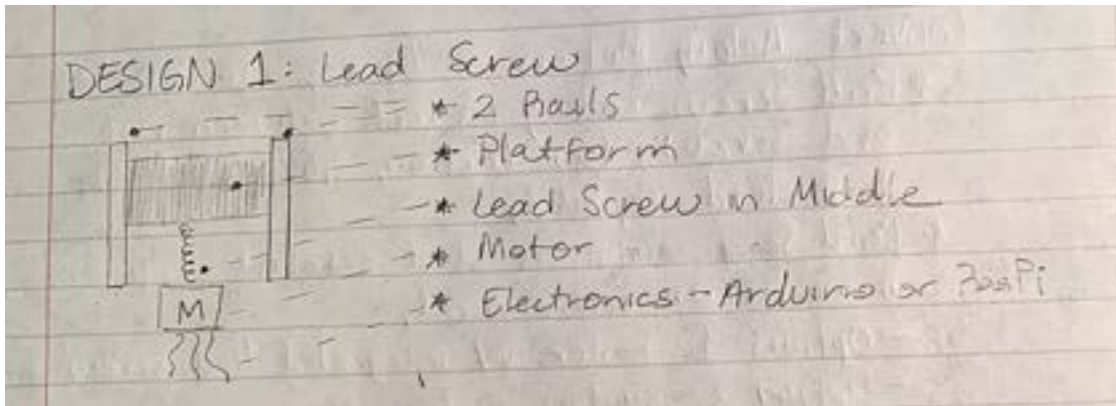 DESIGN 1: Lead Screw
* 2 Rails
* Platform
* Lead Screw in Middle
* Motor
M
* Electronics - Arduino or RasPi